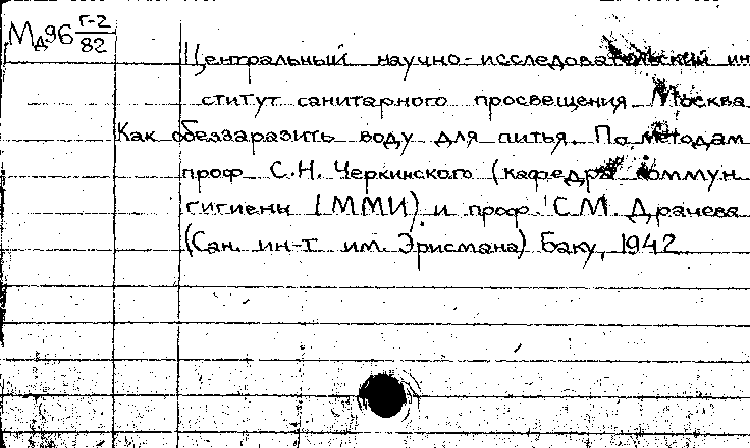 Мд96 Г-2/82
Центральный научно-исследовательский ин
ститут санитарного просвещения Москва
Как обеззаразить воду для питья. По методам
проф С.Н. Черкинского (кафедра коммун
гигиены IММИ) и проф. С.М. Драчева
(Сан. ин-т им. Эрисмана) Баку, 1942